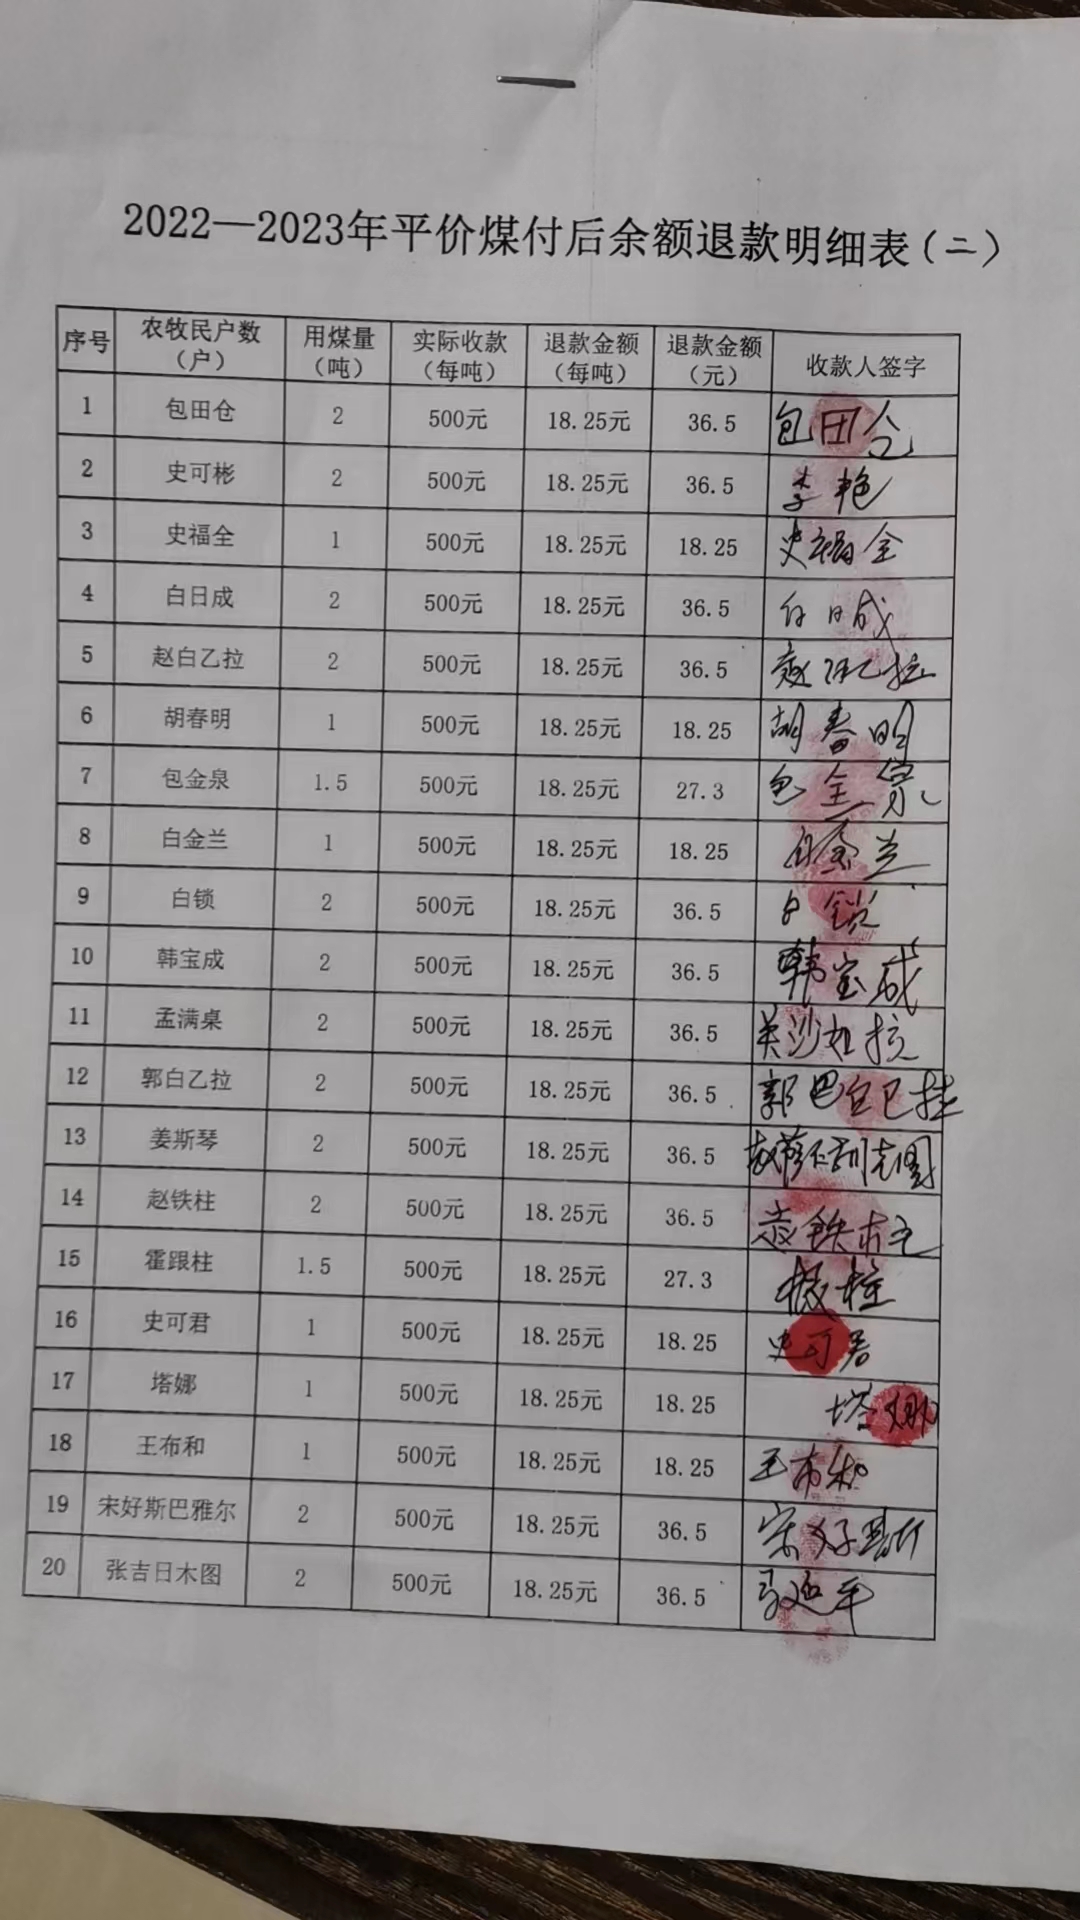 2022—2023年平价煤付后余额退款明细表(二)
序号 农牧民户数(户) 用煤量(吨) 实际收款(每吨) 退款金额(每吨) 退款金额(元) 收款人签字
1 包田仓 2 500元 18.25元 36.5 包田仓
2 史可彬 2 500元 18.25元 36.5 李艳
3 史福全 1 500元 18.25元 18.25 史福全
4 白日成 2 500元 18.25元 36.5 白日成
5 赵白乙拉 2 500元 18.25元 36.5 赵白乙拉
6 胡春明 1 500元 18.25元 18.25 胡春明
7 包金泉 1.5 500元 18.25元 27.3 包金泉
8 白金兰 1 500元 18.25元 18.25 白金兰
9 白锁 2 500元 18.25元 36.5 白锁
10 韩宝成 2 500元 18.25元 36.5 韩宝成
11 孟满桌 2 500元 18.25元 36.5
12 郭白乙拉 2 500元 18.25元 36.5
13 姜斯琴 2 500元 18.25元 36.5
14 赵铁柱 2 500元 18.25元 36.5 赵铁柱
15 霍跟柱 1.5 500元 18.25元 27.3
16 史可君 1 500元 18.25元 18.25 史可君
17 塔娜 1 500元 18.25元 18.25 塔娜
18 王布和 1 500元 18.25元 18.25 王布和
19 宋好斯巴雅尔 2 500元 18.25元 36.5 宋好斯
20 张吉日木图 2 500元 18.25元 36.5